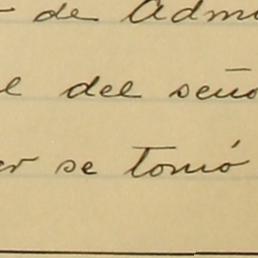 de Admi
l del seño
er se tomó